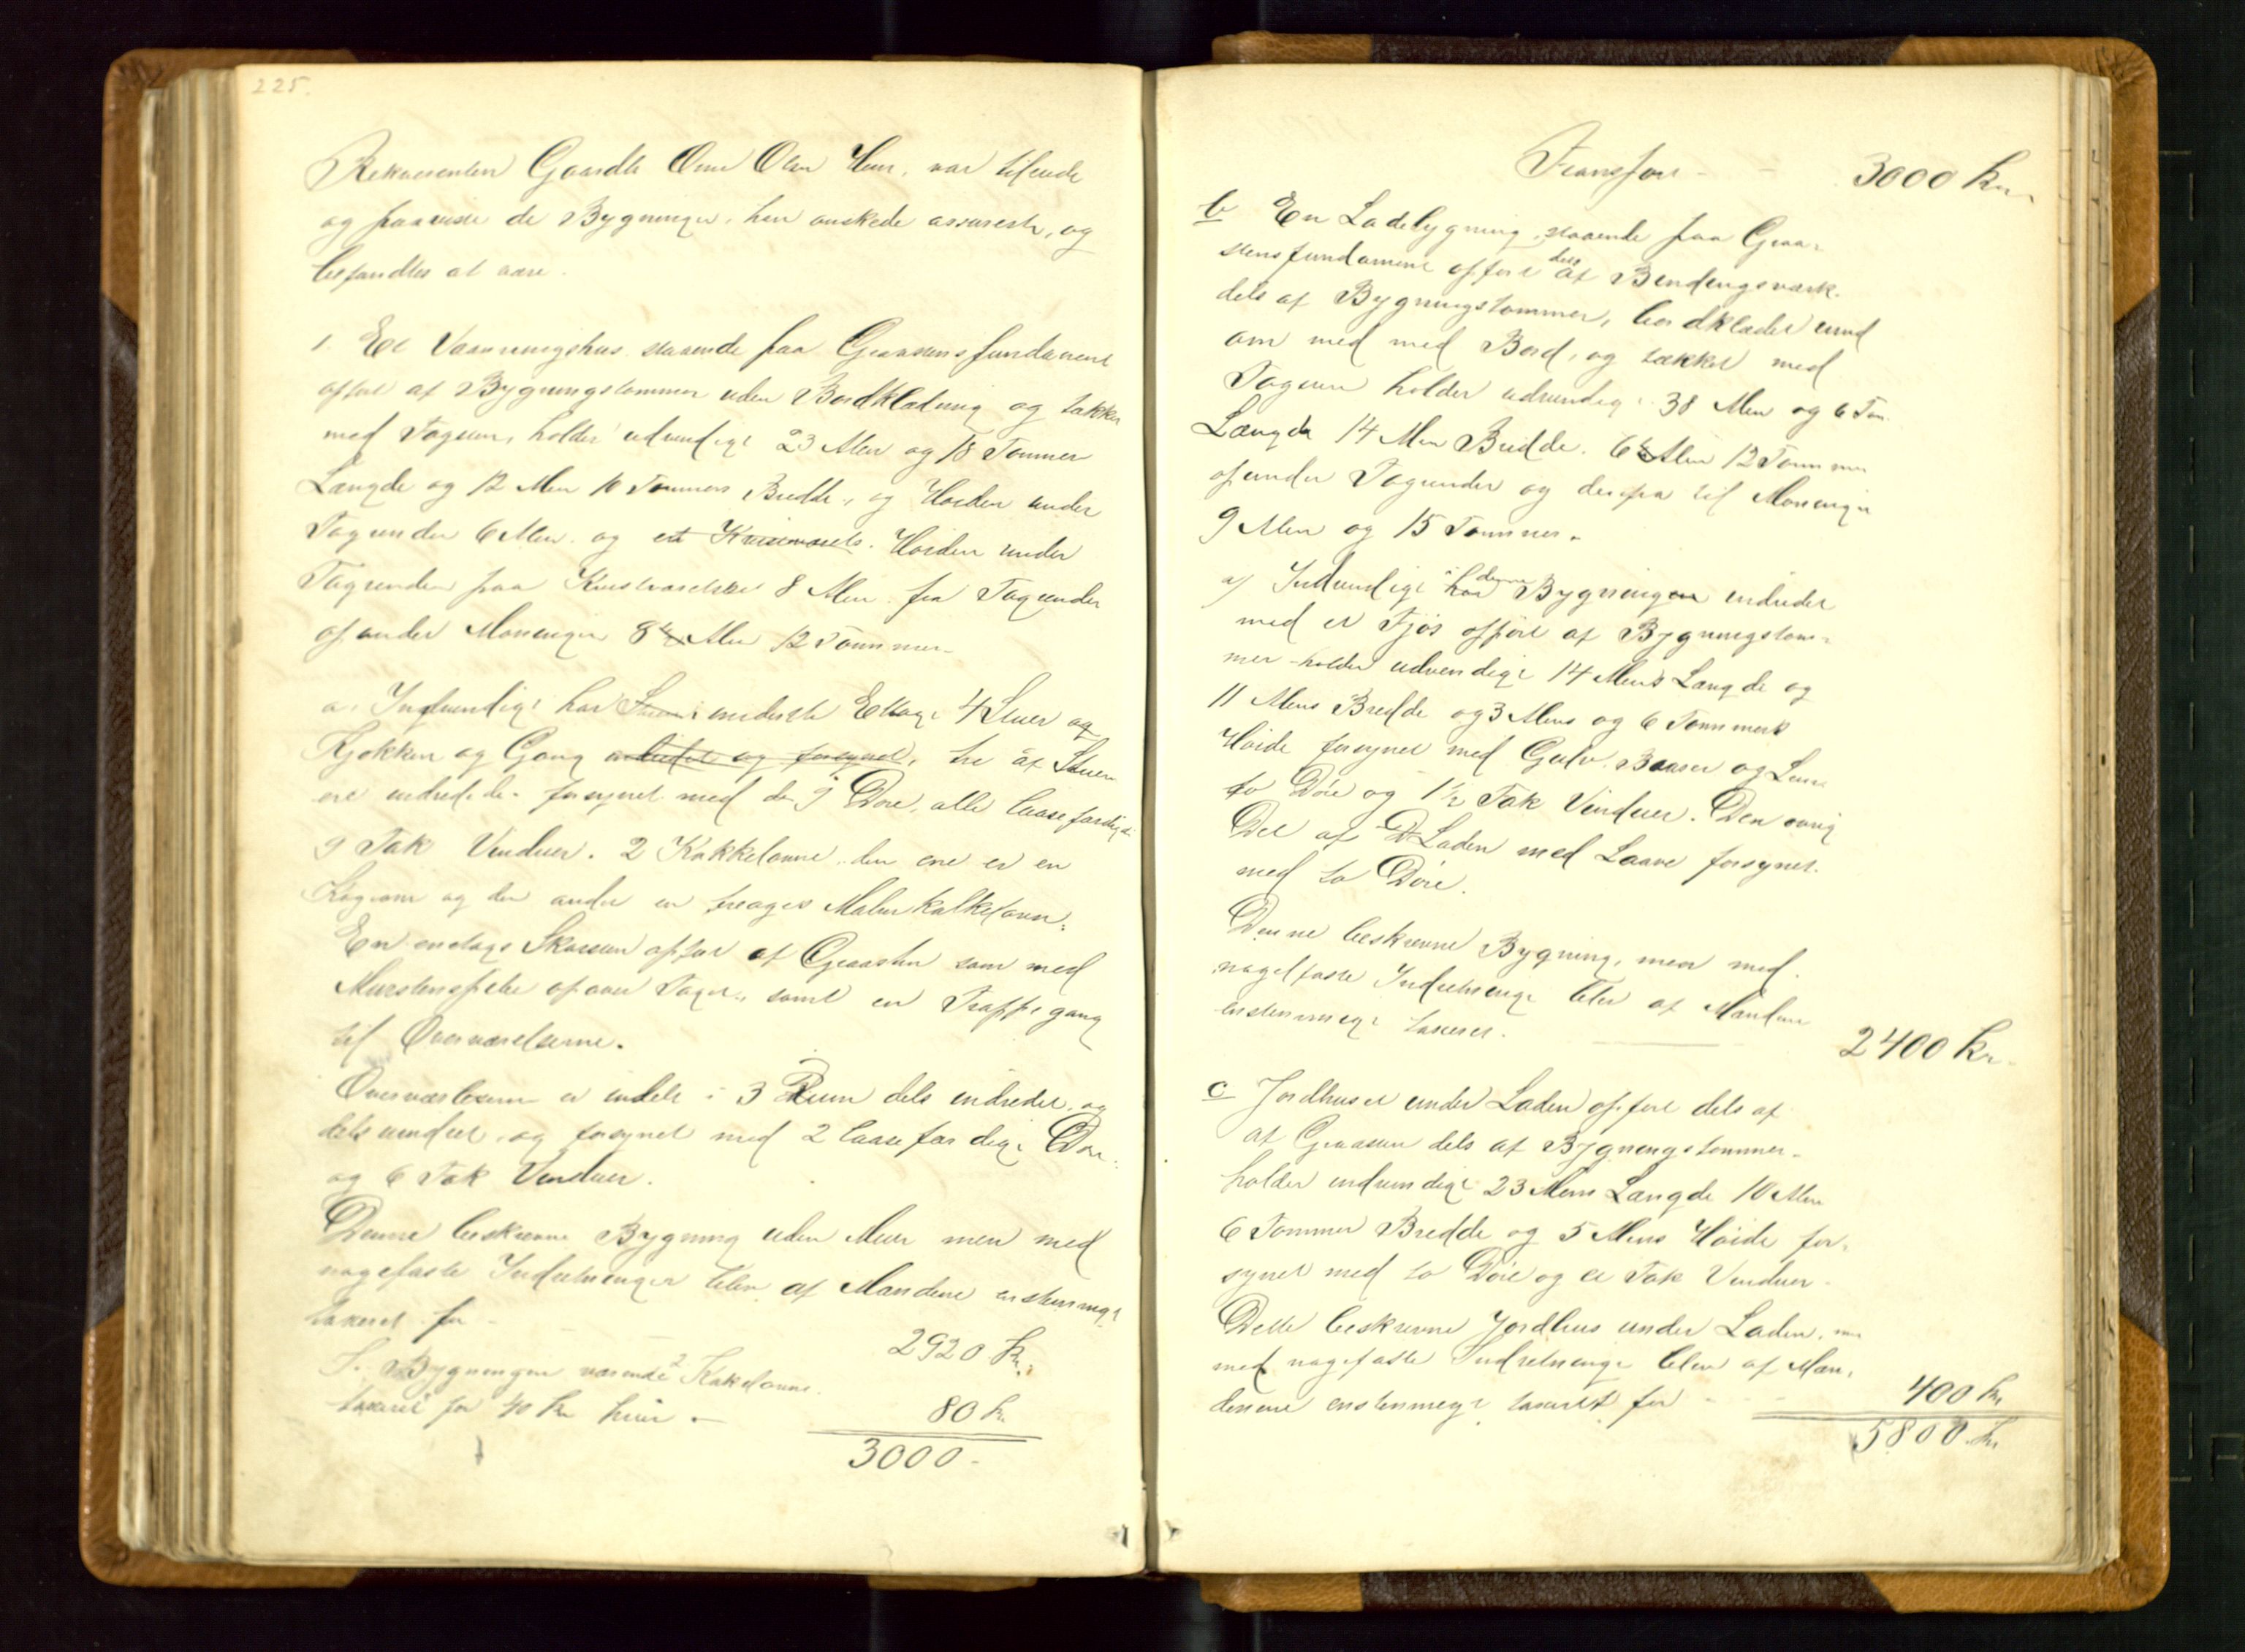 225.
Rekvirenten Gaardb Ole Olsen var tilstede
og paaviste de Bygninger, han ønskede assureret, og
befandtes at være.
1. Et Vaaningshus staaende paa Graastensfundament
opført af Bygningstømmer uden Bordklædning og tækket
med Tagsten, holder udvendigt 23 Alen og 18 Tommer
Længde og 12 Alen 10 Tommers Bredde, og Høiden under
Tagrenden 6 Alen og et Høiden under
Tagrenden paa Kvistværelse 8 Alen fra Tagrenden
op under Mønningen 8 Alen 12 Tommer
a. Indvendigt har underste Etage 4 Stuer og
Kjøkken og Gang indredet og forsynet, tre af Stuerne
ere indredede forsynet med 9 Døre, alle laasefærdige
9 Fak Vinduer. 2 Kakkelovne, den ene er en
Kogeovn og den anden en treetages Kakkelovn.
En enetages Skorsten opført af Graasten som med
Murstenspibe op over Taget, samt en Trappegang
til Overværelserne.
Overværelserne er indelt i 3 Rum dels indredet og
dels uindret, og forsynet med 2 laasefærdige Døre
og 6 Fak Vinduer.
Denne beskrevne Bygning uden Muur men med
nagelfaste Indretninger blev af Mændene enstemmigt
taxeret for 2920 Kr.
I Bygningen værende 2 Kakelovne
taxeret for 40 Kr hver - 80 Kr
3000 -
Transport - - 3000 Kr.
b En Ladebygning, staaende paa Graa-
stensfundament opført dels af Bindingsværk
dels af Bygningstømmer, bordklædet rund
om med med Bord, og tækket med
Tagsten holder udvendigt 38 Alen og 6 Tom.
Længde 14 Alen Bredde. 6 Alen 12 Tommer
op under Tagrenden og derfra til Mønningen
9 Alen og 15 Tommer.
a) Indvendigt har denne Bygningen indredet
med et Fjøs opført af Bygningstøm-
mer holder udvendigt 14 Alens Længde og
11 Alens Bredde og 3 Alens og 6 Tommers
Høide forsynet med Gulv. Baaser og
to Døre og 1½ Fak Vinduer. Den øvrige
Del af Laden med Laave forsynet
med to Døre.
Denne beskrevne Bygning, men med
nagelfaste Indretninge blev af Mændene
enstemmigt taxeret. 2400 Kr.
c Jordhuset under Laden opført dels af
af Graasten dels af Bygningstømmer
holder indvendigt 23 Alens Længde 10 Alen
6 Tommer Bredde og 5 Alens Høide for-
synet med to Døre og et Fak Vinduer.
Dette beskrevne Jordhus under Laden,
med nagelfaste Indretninge blev af Mæn-
denene enstemmigt taxeret for - - 400 Kr
5800 Kr